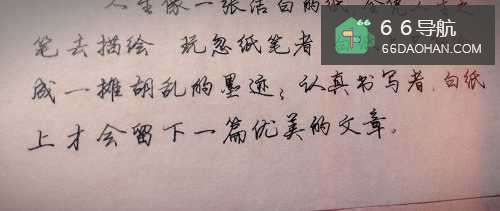 人生像一张洁白的纸,全凭人生之
66导航
66DAOHAN.COM
笔去描绘 玩忽纸笔者
成一摊胡乱的墨迹;认真书写者,白纸
上才会留下一篇优美的文章。